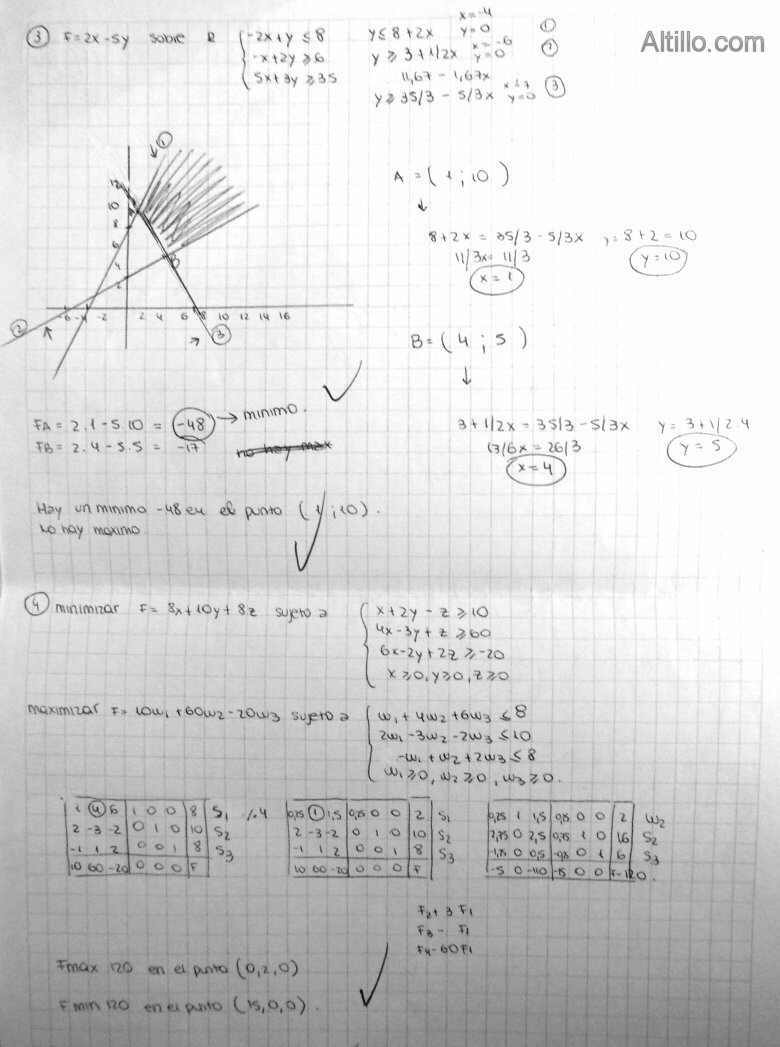 Altillo.com
③ F=2x-5y sobre R { -2x+y ≤ 8 y ≤ 8+2x x=-4 y=0 ①
-x+2y ≥ 6 y ≥ 3+1/2x x=-6 y=0 ②
5x+3y ≥ 35 11,67 - 1,67x
y ≥ 35/3 - 5/3x x=7 y=0 ③
①
12
10
8
6
4
2
A
B
-6 -4 2 4 6 8 10 12 14 16
② ③
A = (1 ; 10)
8+2x = 35/3 - 5/3x y=8+2=10
11/3x = 11/3 y=10
x=1
B = (4 ; 5)
3+1/2x = 35/3 - 5/3x y = 3+1/2.4
13/6x = 26/3 y=5
x=4
FA = 2.1-5.10 = -48 → minimo.
FB = 2.4-5.5 = -17 no hay max
Hay un minimo -48 en el punto (1;10).
No hay maximo.
④ minimizar F= 8x+10y+8z sujeto a { x+2y-z ≥ 10
4x-3y+z ≥ 60
6x-2y+2z ≥ -20
x≥0, y≥0, z≥0
maximizar F= 10w₁+60w₂-20w₃ sujeto a { w₁+4w₂+6w₃ ≤ 8
2w₁-3w₂-2w₃ ≤ 10
-w₁+w₂+2w₃ ≤ 8
w₁≥0, w₂≥0, w₃≥0.
1 4 6 1 0 0 8 S₁ /:4
2 -3 -2 0 1 0 10 S₂
-1 1 2 0 0 1 8 S₃
10 60 -20 0 0 0 F
0,25 1 1,5 0,25 0 0 2 S₁
2 -3 -2 0 1 0 10 S₂
-1 1 2 0 0 1 8 S₃
10 60 -20 0 0 0 F
0,25 1 1,5 0,25 0 0 2 W₂
2,75 0 2,5 0,75 1 0 16 S₂
-1,25 0 0,5 -0,25 0 1 6 S₃
-5 0 -110 -15 0 0 F-120.
F₂+3F₁
F₃- F₁
F₄-60F₁
Fmax 120 en el punto (0,2,0)
Fmin 120 en el punto (15,0,0).